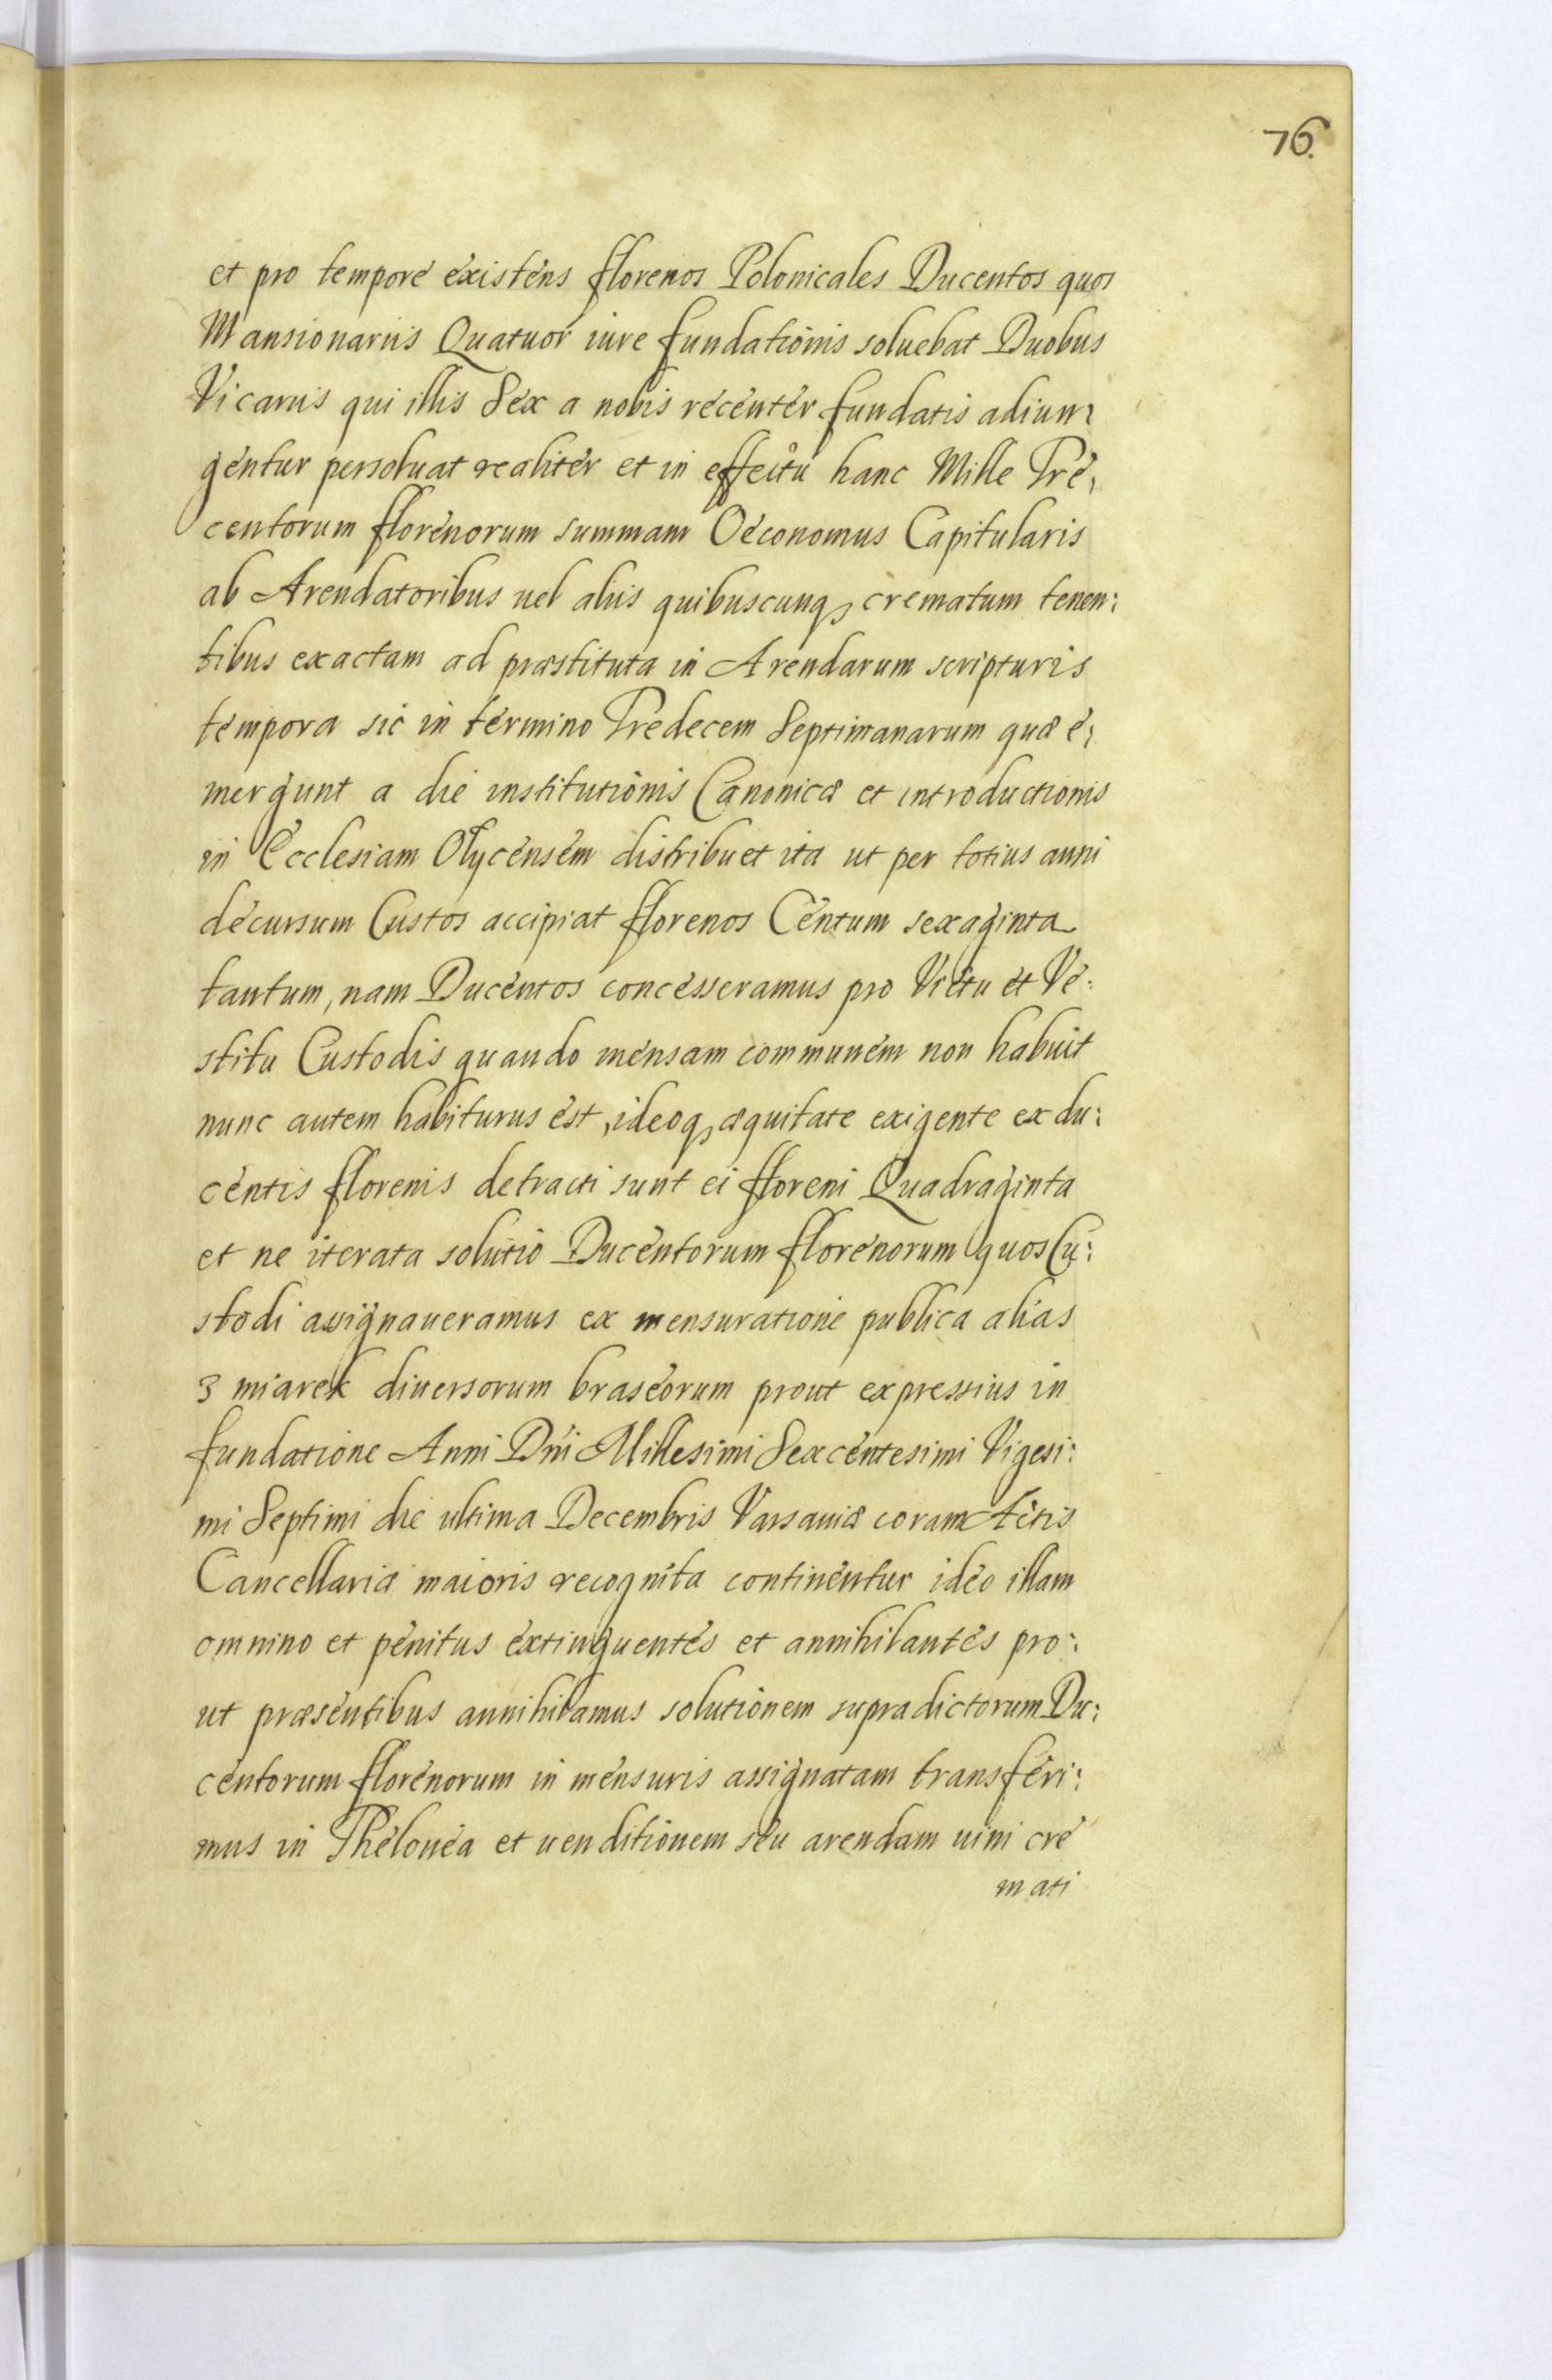 76.
et pro tempore existens florenos Polonicales Ducentos quos
Mansionariis Quatuor iure fundationis soluebat Duobus
Vicariis qui illis Sex a nobis recenter fundatis adiun:
gentur persoluat realiter et in effectu hanc Mille Tre:
centorum florenorum summam Oeconomus Capitularis
ab Arendatoribus uel aliis quibuscunq, crematum tenen:
tibus exactam ad præstituta in Arendarum scripturis
tempora sic in termino Tredecem Septimanarum quæ e:
mergunt a die institutionis Canonicæ et introductionis
in Ecclesiam Olycensem distribuet ita ut per totius anni
decursum Custos accipiat florenos Centum sexaginta
tantum, nam Ducentos concesseramus pro Victu et Ve:
stitu Custodis quando mensam communem non habuit
nunc autem habiturus est, ideoq, æquitate exigente ex du:
centis florenis detracti sunt ei floreni Quadraginta
et ne iterata solutio Ducentorum florenorum quos Cu:
stodi assignaueramus ex mensuratione publica alias
3 miarek diuersorum braseorum prout expressius in
fundatione Anni Dni Millesimi Sexcentesimi Vigesi:
mi Septimi die ultima Decembris Varsauiæ coram Actis
Cancellariæ maioris recognita continentur ideo illam
omnino et penitus extinguentes et annihilantes pro:
ut præsentibus annihilamus solutionem supradictorum Du:
centorum florenorum in mensuris assignatam transferi:
mus in Thelonea et uenditionem seu arendam uini cre
mati